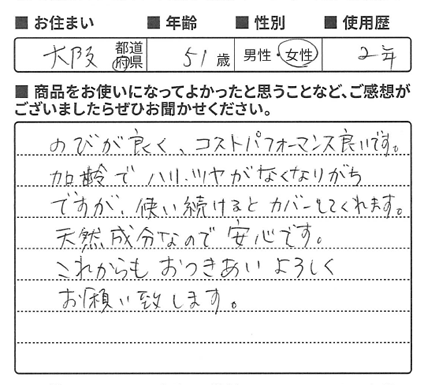 ■ お住まい ■ 年齢 ■ 性別 ■ 使用歴
大阪 都道府県 51歳 男性・女性 2年
■ 商品をお使いになってよかったと思うことなど、ご感想が
ございましたらぜひお聞かせください。
のびが良く、コストパフォーマンス良いです。
加齢でハリ・ツヤがなくなりがち
ですが、使い続けるとカバーしてくれます。
天然成分なので安心です。
これからもおつきあいよろしく
お願い致します。